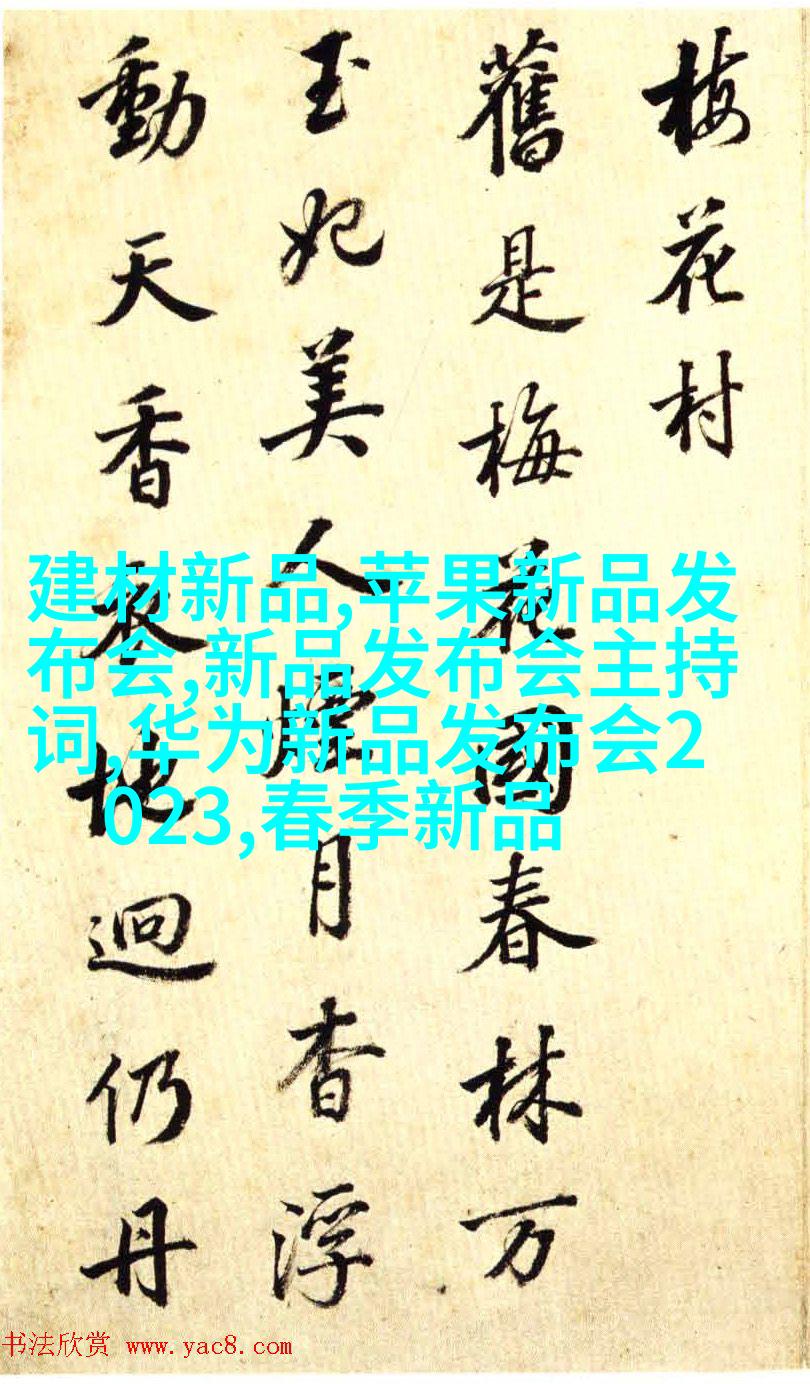 梅花村
舊是梅花國春林万
玉妃美人月杳浮
動天香地迥仍丹
建材新品,苹果新品发
布会,新品发布会主持
词,华为新品发布会2
023,春季新品
书法欣赏 www.yac8.com